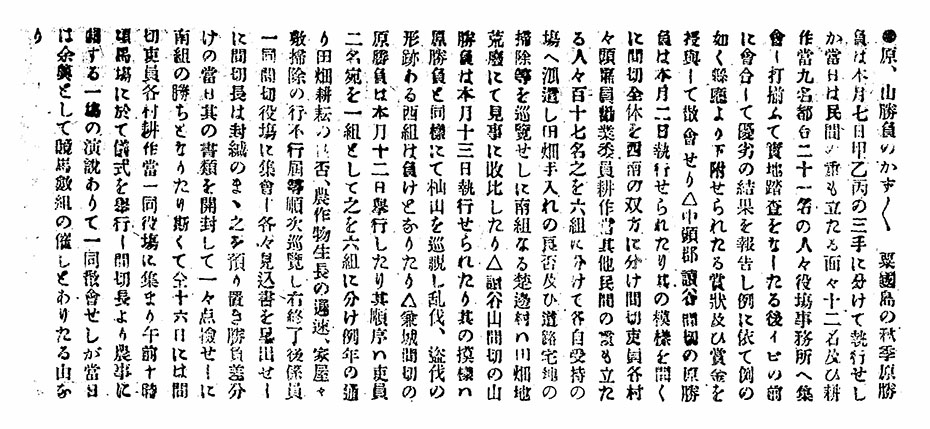 ●原、山勝負のかず〳〵 粟國島の秋季原勝
負は本月七日甲乙丙の三手に分けて執行せし
か當日は民間の重も立たる面々十二名及ひ耕
作當九名都合二十一名の人々役塲事務所へ集
會し打揃ふて實地踏査をなしたる後イビの前
に會合して優劣の結果を報告し例に依て例の
如く縣廳より下附せられたる賞狀及び賞金を
授與して散會せり△中頭郡讀谷山間切の原勝
負は本月二日執行せられたり其の模樣を聞く
に間切全体を西南の双方に分け間切吏員各村
々頭勸業委員耕作當其他民間の重も立た
る人々百十七名之を六組に分けて各自受持の
塲へ派遣し田畑手入れの良否及ひ道路宅地の
掃除等を巡覽せしに南組なる楚邊村ハ田畑地
荒廢にて見事に敗北したり△讀谷山間切の山
勝負は本月十三日執行せられたり其の摸樣ハ
原勝負と同樣にて杣山を巡視し乱伐、盜伐の
形跡ある西組は負けとなりたり△兼城間切の
原勝負は本月十二日舉行したり其順序ハ吏員
二名宛を一組として之を六組に分け例年の通
り田畑耕耘の良否、農作物生長の遲速、家屋々
敷掃除の行不行届等順次巡覽し右終了後係員
一同間切役塲に集會し各々見込書を差出せし
に間切長は封緘のまゝ之を預り置き勝負差分
けの當日其の書類を開封して一々点撿せしに
南組の勝ちとなりたり斯くて仝十六日には間
切吏員各村耕作當一同役塲に集まり午前十時
頃馬塲に於て儀式を舉行し間切長より農事に
關する一塲の演説ありて一同散會せしが當日
は余興として競馬數組の催しとありたる由な
り